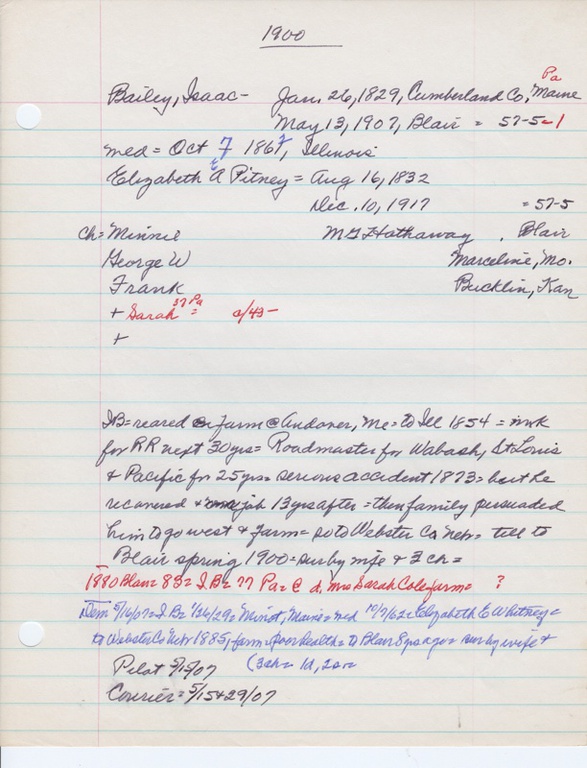 1900
Pa
Bailey, Isaac - Jan. 26, 1829, Cumberland Co, Maine
May 13, 1907, Blair = 57-5-1
med = Oct 7 1862, Illinois
E
Elizabeth A Pitney = Aug 16, 1832
Dec. 10, 1917 = 57-5
ch = Minnie M G Hathaway , Blair
George W Marceline, Mo.
Frank Bucklin, Kan
+ Sarah 37 Pa = a/43-
+
IB = reared farm @ Andover, Me = to Ill 1854 = wk
for RR next 30 yrs = Roadmaster for Wabash, St Louis
& Pacific for 25 yrs = serious accident 1873 = but he
recovered & job 13 yrs after = then family persuaded
him to go west & farm = so to Webster Co Neb = till to
Blair spring 1900 = sur by wife & 3 ch =
1880 Blair = 83 = I.B = 77 Pa = @ d, Mrs Sarah Cole farm = ?
Dem 5/16/07 = I.B = 1/26/29 = Minot, Maine = med 10/7/62 = Elizabeth E Whitney =
to Webster Co Neb 1885, farm = poor health = to Blair 8 yrs ago = sur by wife &
Pilot 5/15/07 (3 ch = 1d, 2s =
Courier = 5/15 & 29/07